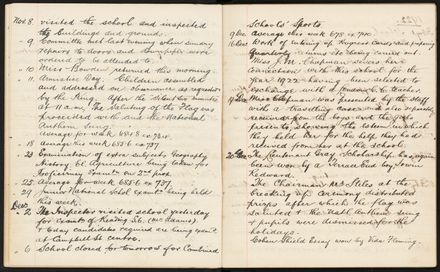 Nov. 8. visited the school and inspected
the buildings and ground.
9 Committee met last evening when sundry
repairs to doors and were
ordered to be attended to.
10 Miss Bowden returned this morning.
11 Armistice Day Children assembled
and addressed on observance as requested
by the King. After the silent two minutes
at 11 a.m. the Saluting of the Flag was
proceeded with and the National
Anthem sung.
Average for week
18 Average this week 655.6 on 737
23 Examination of extra subjects Geography
History & Agriculture being taken for
Proficiency Exam on 2nd prox.
25 Average for week 658.6 on 737
29 Junior National Schol Exam being held
this week.
Dec. 2. The Inspector visited school yesterday
for Exam of Reading etc.
& today candidates required are being exam'd
at Campbell St centre.
6 School closed for tomorrow for Combined
Schools Sports
9 Dec Average this week 678 on 700.
16 Dec Work of entering up Progress Cards and preparing
Quarterly returns etc being carried out
Miss J. M. Chapman severs her
connection with this school for the
year 1922 having been selected to
exchange with a London C.C. teacher.
Miss Chapman was presented by the staff
with a travelling and also
received from the boys and the girls
presents, showing the esteem in which
they held her for the help they had
received from her at the school.
20 Dec The Lieutenant Gray Scholarship has again
been won by a Terrace End boy Lewin
Kedward.
The Chairman Mr Seely at the
breaking up ceremony distributed
prizes after which the flag was
saluted & the Natl Anthem sung
& pupils were dismissed for the
holidays.
Cohen Shield Essay won by Vida Fleming.